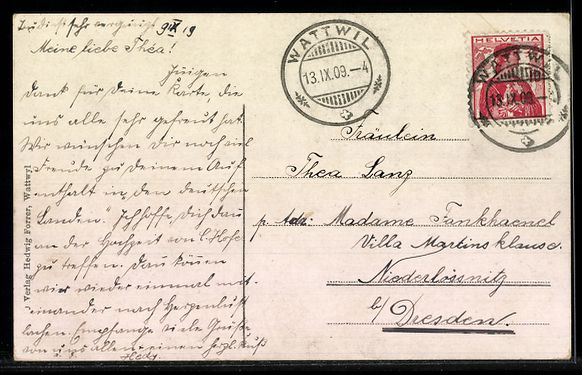 Meine liebe Thea!
Innigen
Dank für Deine Karte, die
uns alle sehr gefreut hat.
Wir wünschen Dir noch viel
Freude zu deinem Auf
enthalt in "den deutschen
Landen". Ich hoffe, Dich dan
an der Hochzeit von
zu treffen. Dan können
wir wieder einmal mit-
einander nach Herzenslust
lachen. Empfange viele Grüsse
von uns allen & einen herzl. Kuß
Hedy.
Verlag Hedwig Forrer, Wattwyl
WATTWIL
13.IX.09.–4
HELVETIA
WATTWIL
13.IX.09.
Fräulein
Thea Lanz
p. Adr. Madame Fankhaenel
Villa Martinsklause.
Niederlössnitz
b/
Dresden.